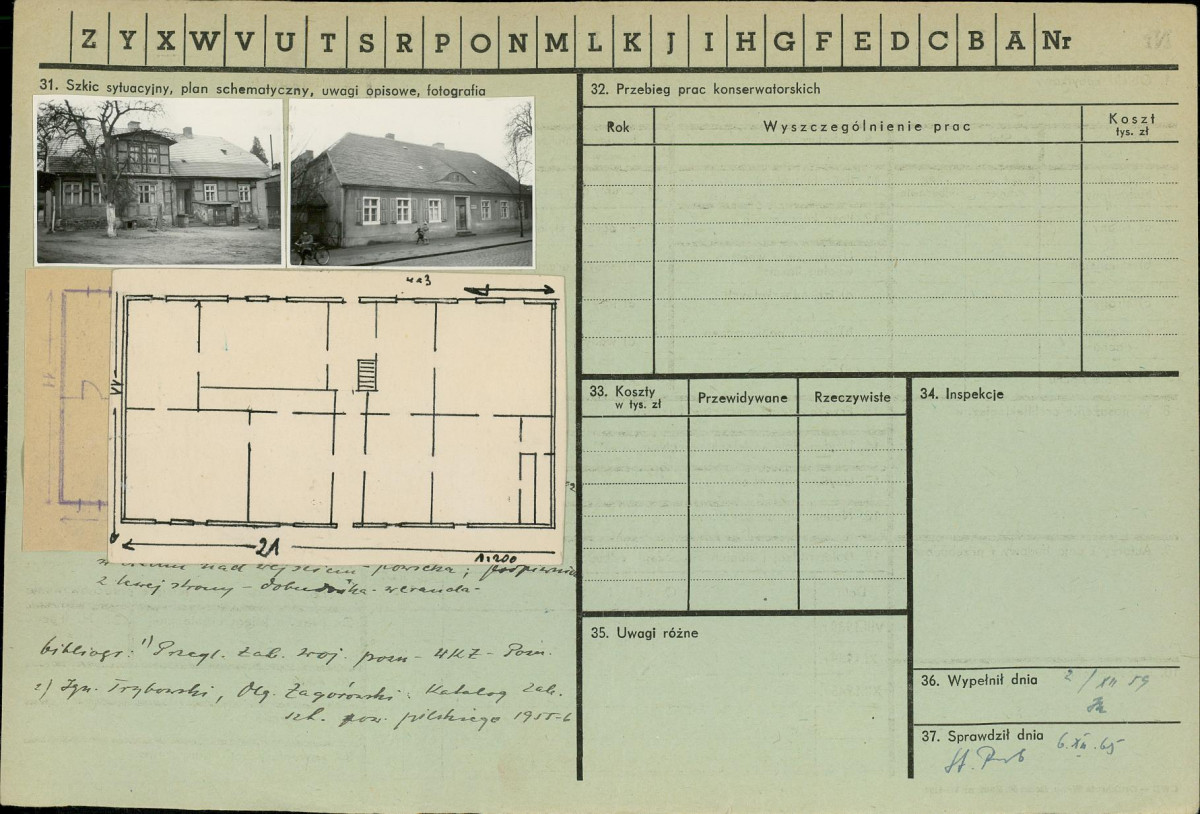 Z Y X W V U T S R P O N M L K J I H G F E D C B A Nr
31. Szkic sytuacyjny, plan schematyczny, uwagi opisowe, fotografia
11
21
1:200
nad wejściem - powieka;
z lewej strony - dobudówka - weranda -
bibliogr: 1) Przegl. Zab. woj. pozn - WKZ - Pozn.
2) Ign. Trybowski, Olg. Zagórowski: Katalog Zab.
szt. pow. pilskiego 1955-6
32. Przebieg prac konserwatorskich
Rok
Wyszczególnienie prac
Koszt
tys. zł
33. Koszty
w tys. zł
Przewidywane
Rzeczywiste
34. Inspekcje
35. Uwagi różne
36. Wypełnił dnia 2/XII 59
37. Sprawdził dnia 6.XII.65